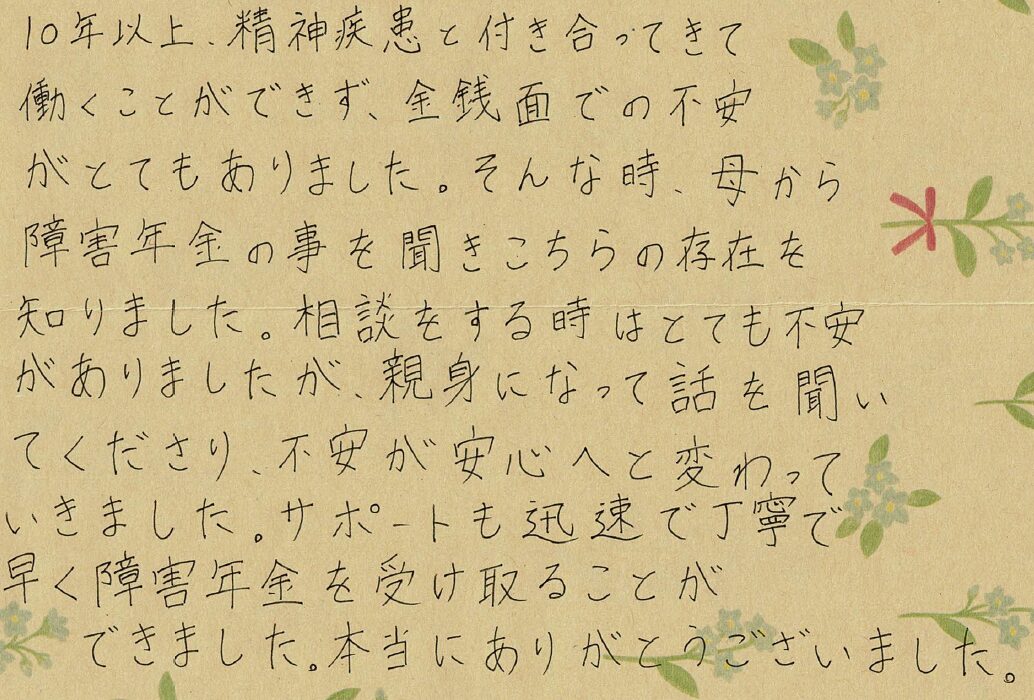 10年以上、精神疾患と付き合ってきて
働くことができず、金銭面での不安
がとてもありました。そんな時、母から
障害年金の事を聞きこちらの存在を
知りました。相談をする時はとても不安
がありましたが、親身になって話を聞い
てくださり、不安が安心へと変わって
いきました。サポートも迅速で丁寧で
早く障害年金を受け取ることが
できました。本当にありがとうございました。